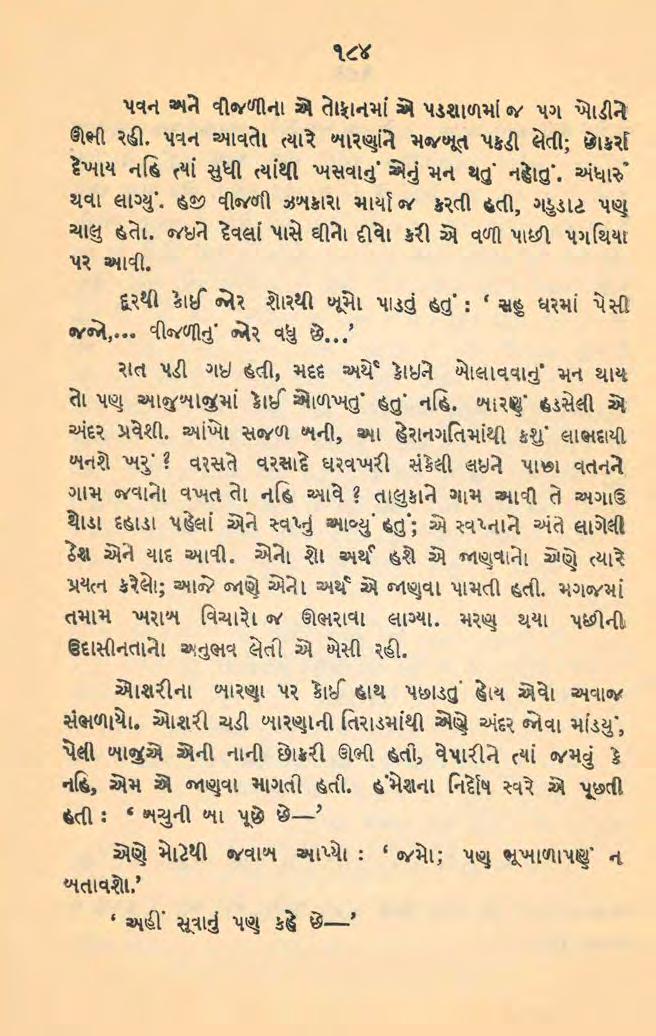 ૧૮૪
પવન અને વીજળીના એ તોફાનમાં એ પડશાળમાં જ પગ ખોડીને
ઊભી રહી. પવન આવતો ત્યારે બારણાંને મજબૂત પકડી લેતી; છોકરાં
દેખાય નહિ ત્યાં સુધી ત્યાંથી ખસવાનું એનું મન થતું નહોતું. અંધારું
થવા લાગ્યું. હજી વીજળી ઝબકારા માર્યા જ કરતી હતી, ગડુડાટ પણ
ચાલુ હતો. જઇને દેવલાં પાસે ઘીનો દીવો કરી એ વળી પાછી પગથિયા
પર આવી.
દૂરથી કોઈ જોર શોરથી બૂમો પાડતું હતું : ‘ સહુ ઘરમાં પેસી
જજો,... વીજળીનું જોર વધુ છે...’
રાત પડી ગઇ હતી, મદદ અર્થે કોઇને બોલાવવાનું મન થાય
તો પણ આજુબાજુમાં કોઈ ઓળખતું હતું નહિ. બારણું હડસેલી એ
અંદર પ્રવેશી. આંખો સજળ બની, આ હેરાનગતિમાંથી કશું લાભદાયી
બનશે ખરું ? વરસતે વરસાદે ઘરવખરી સંકેલી લઇને પાછા વતનને
ગામ જવાનો વખત તો નહિ આવે ? તાલુકાને ગામ આવી તે અગાઉ
થોડા દહાડા પહેલાં એને સ્વપ્નું આવ્યું હતું; એ સ્વપ્નાને અંતે લાગેલી
ઠેશ એને યાદ આવી. એનો શો અર્થ હશે એ જાણવાનો એણે ત્યારે
પ્રયત્ન કરેલો; આજે જાણે એનો અર્થ એ જાણવા પામતી હતી. મગજમાં
તમામ ખરાબ વિચારો જ ઊભરાવા લાગ્યા. મરણ થયા પછીની
ઉદાસીનતાનો અનુભવ લેતી એ બેસી રહી.
ઓશરીના બારણા પર કોઈ હાથ પછાડતું હોય એવો અવાજ
સંભળાયો. ઓશરી ચડી બારણાની તિરાડમાંથી એણે અંદર જોવા માંડયું,
પેલી બાજુએ એની નાની છોકરી ઊભી હતી, વેપારીને ત્યાં જમવું કે
નહિ, એમ એ જાણવા માગતી હતી. હંમેશના નિર્દોષ સ્વરે એ પૂછતી
હતી : ‘ બચુની બા પૂછે છે—’
એણે મોટેથી જવાબ આપ્યો : ‘ જમો; પણ ભૂખાળાપણું ન
બતાવશો.’
‘ અહીં સૂવાનું પણ કહે છે—’